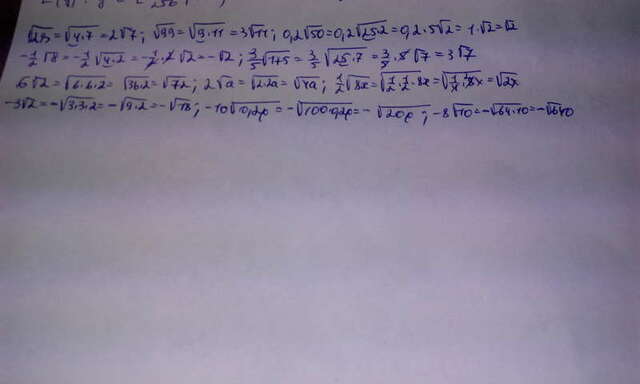 √28 = √4·7 = 2√7; √99 = √9·11 = 3√11; 0,2√50 = 0,2√25·2 = 0,2·5√2 = 1·√2 = √2
-1/2√8 = -1/2√4·2 = -1/2·2√2 = -√2; 3/5√175 = 3/5√25·7 = 3/5·5√7 = 3√7
6√2 = √6·6·2 = √36·2 = √72; 2√a = √2·2a = √4a; 1/2√8x = √1/2·1/2·8x = √1/4·8x = √2x
-3√2 = -√3·3·2 = -√9·2 = -√18; -10√0,2p = -√100·0,2p = -√20p; -8√10 = -√64·10 = -√640